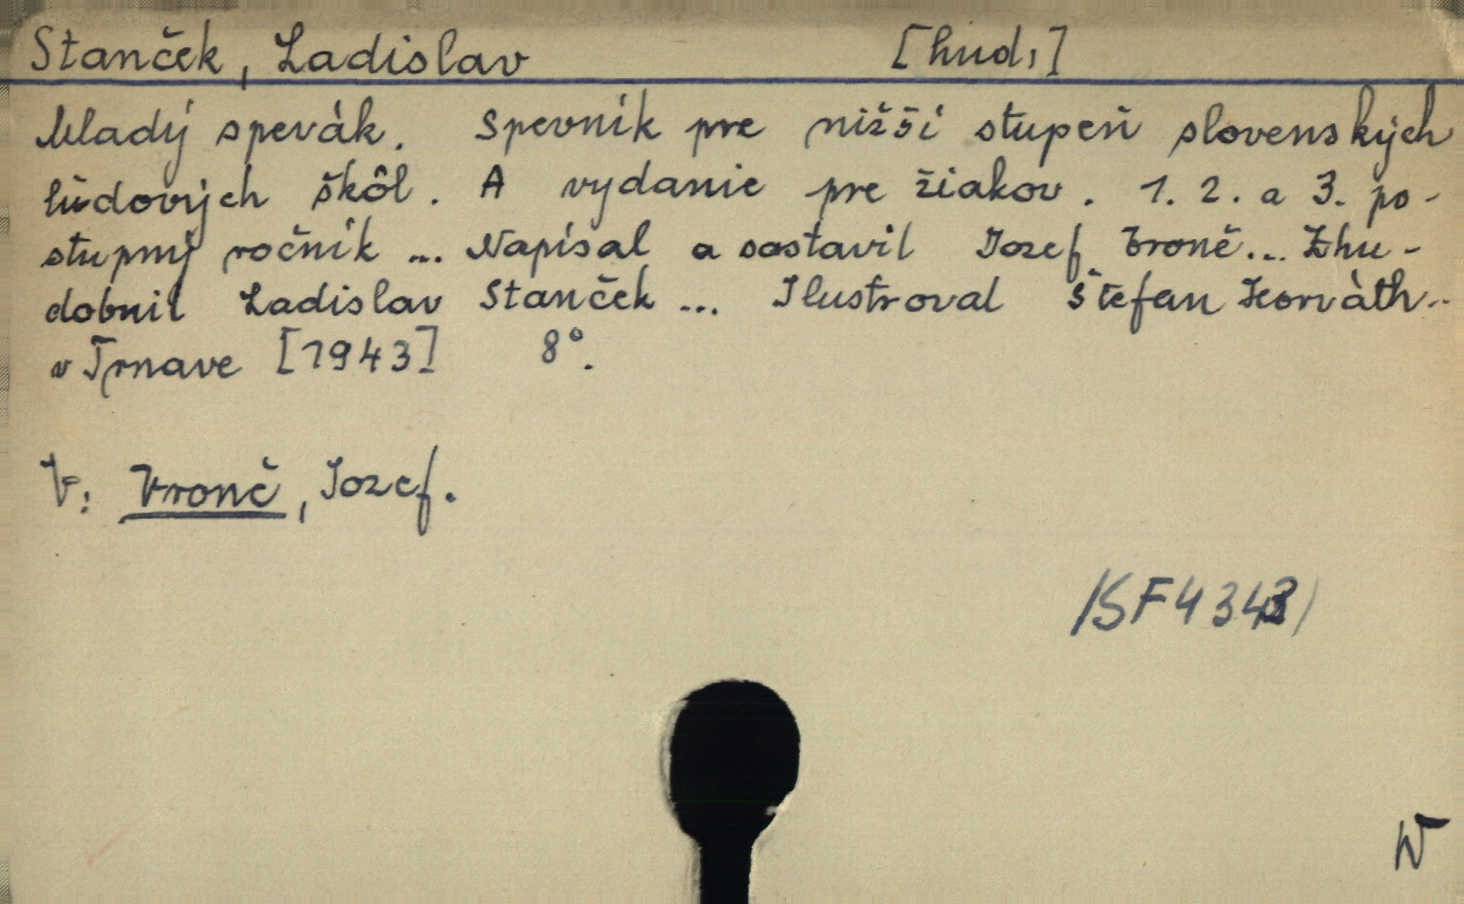 Stanček, Ladislav [hud.]
Mladý spevák. Spevník pre nižší stupeň slovenských
ľudových škôl. A vydanie pre žiakov. 1. 2. a 3. po-
stupný ročník ... Napísal a sostavil Jozef Vronč... Zhu-
dobnil Ladislav Stanček ... Ilustroval Štefan Horváth..
v Trnave [1943] 8°.
V: Vronč, Jozef.
/SF4343/
W